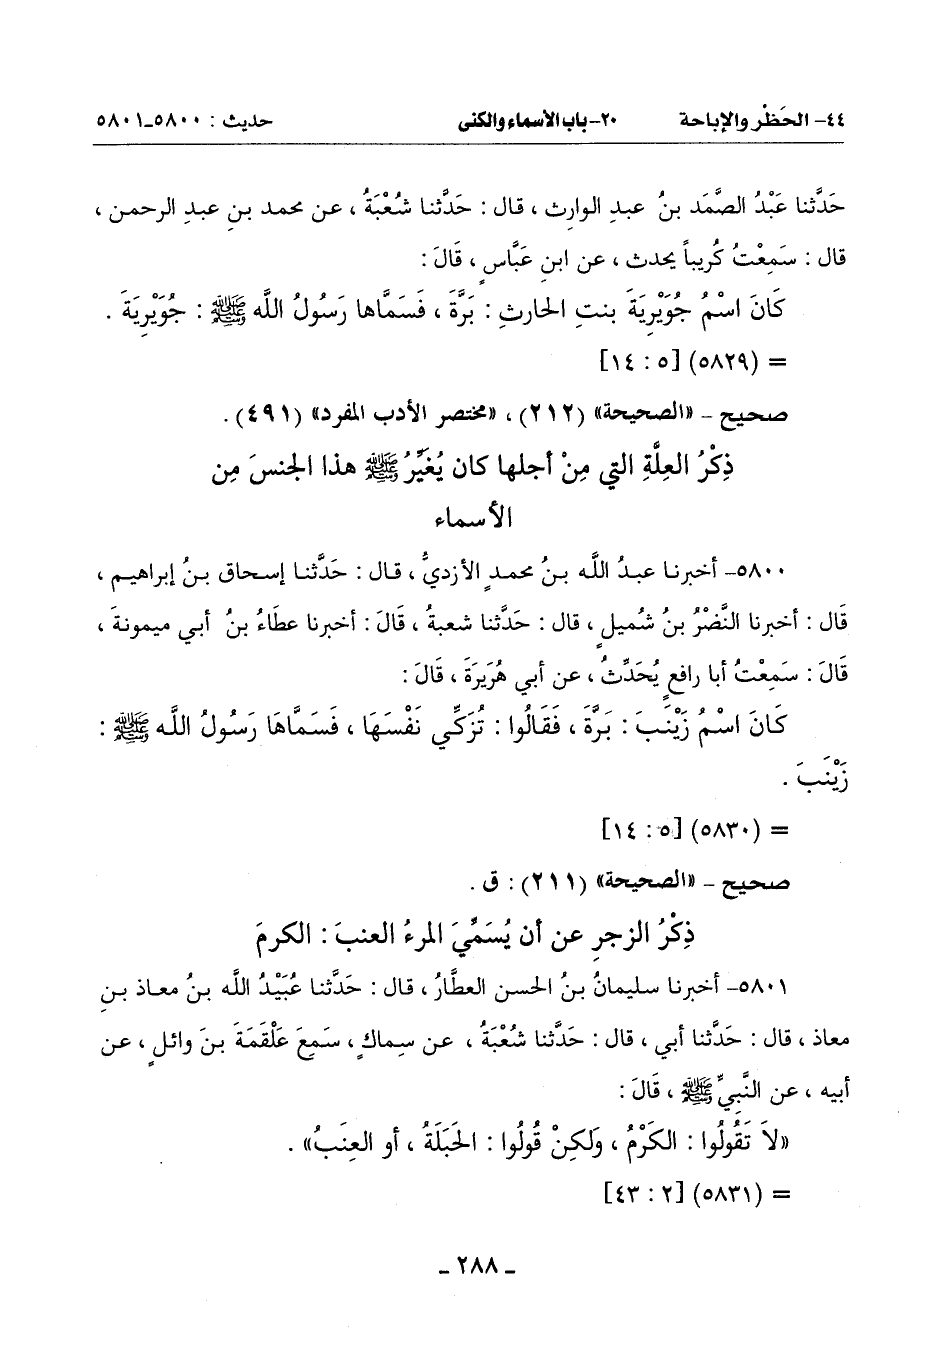 ٤٤- الحَظْر والإباحة ٢٠-باب الأسماء والكنى حديث : ٥٨٠٠-٥٨٠١
حَدَّثنا عَبْدُ الصَّمَد بنُ عبدِ الوارِث ، قال : حَدَّثنا شُعْبَةُ ، عن محمد بنِ عبدِ الرحمن ،
قال : سَمِعْتُ كُريباً يحدث ، عن ابنِ عَبَّاسٍ ، قَالَ :
كَانَ اسْمُ جُوَيْرِيَةَ بنتِ الحارثِ : بَرَّةَ ، فَسَمَّاها رَسُولُ اللَّه ﷺ : جُوَيْرِيَةَ .
= (٥٨٢٩) [٥ : ١٤]
صحيح - «الصحيحة» (٢١٢) ، «مختصر الأدب المفرد» (٤٩١) .
ذِكْرُ العِلَّةِ التي مِنْ أجلها كان يُغَيِّرُ ﷺ هذا الجنسَ مِن
الأسماء
٥٨٠٠- أخبرنا عبدُ اللَّه بنُ محمدٍ الأزديُّ ، قال : حَدَّثنا إسحاق بنُ إبراهيم ،
قَال : أخبرنا النَّضْرُ بنُ شُميلٍ ، قال : حَدَّثنا شعبةُ ، قَالَ : أخبرنا عطاءُ بنُ أبي ميمونةَ ،
قَالَ : سَمِعْتُ أبا رافعٍ يُحَدِّثُ ، عن أبي هُرَيرَةَ ، قَالَ :
كَانَ اسْمُ زَيْنَبَ : بَرَّةَ ، فَقَالُوا : تُزَكِّي نَفْسَهَا ، فَسَمَّاهَا رَسُولُ اللَّه ﷺ :
زَيْنَبَ .
= (٥٨٣٠) [٥ : ١٤]
صحيح - «الصحيحة» (٢١١) : ق .
ذِكْرُ الزجرِ عن أن يُسَمِّيَ المرءُ العنبَ : الكرمَ
٥٨٠١- أخبرنا سليمانُ بنُ الحسن العطَّارُ ، قال : حَدَّثنا عُبَيْدُ اللَّه بنُ معاذ بنِ
معاذ ، قال : حَدَّثنا أبي ، قال : حَدَّثنا شُعْبَةُ ، عن سِماكٍ ، سَمِعَ عَلْقَمَةَ بنَ وائلٍ ، عن
أبيه ، عن النَّبيِّ ﷺ ، قَالَ :
«لاَ تَقُولُوا : الكَرْمُ ، وَلَكِنْ قُولُوا : الحَبَلَةُ ، أو العِنَبُ» .
= (٥٨٣١) [٢ : ٤٣]
- ٢٨٨ -